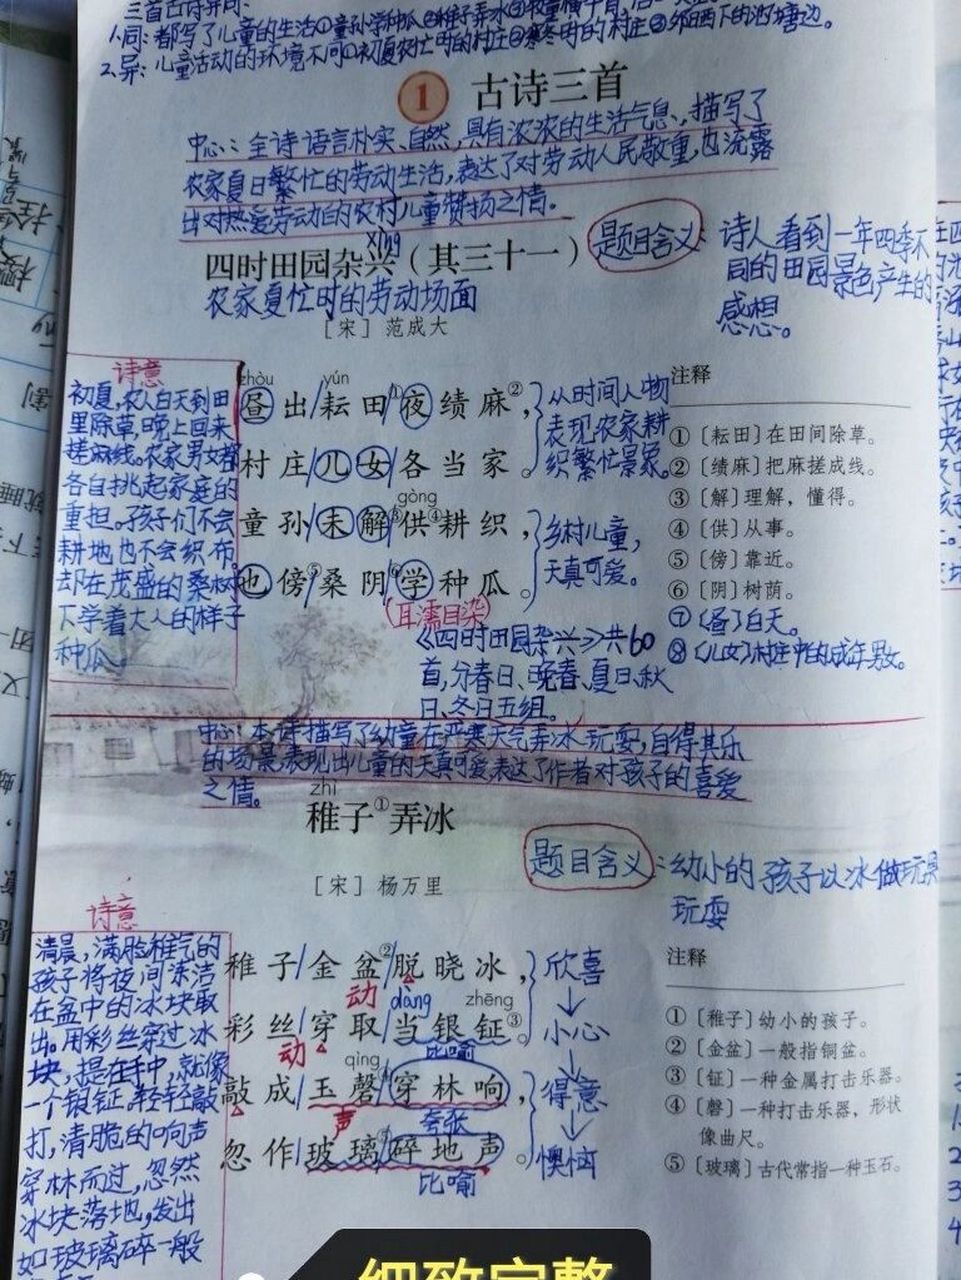 三首古诗异同:
1.同:都写了儿童的生活①童孙学种瓜②稚子弄水③牧童横牛背
2.异:儿童活动的环境不同①初夏农忙时的村庄②寒冬时的村庄③夕阳西下的池塘边。
1 古诗三首
中心:全诗语言朴实、自然,具有浓浓的生活气息,描写了
农家夏日繁忙的劳动生活,表达了对劳动人民敬重,也流露
出对热爱劳动的农村儿童赞扬之情。
xìng
四时田园杂兴(其三十一)
题目含义:诗人看到一年四季不
同的田园景色产生的
感想。
农家夏忙时的劳动场面
[宋] 范成大
诗意
初夏,农人白天到田
里除草,晚上回来
搓麻线。农家男女都
各自挑起家庭的
重担。孩子们不会
耕地也不会织布。
却在茂盛的桑树
下学着大人的样子
种瓜。
zhòu yún
昼出/耘田①/夜绩麻②,
村庄/儿女/各当家。
gòng
童孙/未解③供④耕织,
也傍⑤/桑阴⑥/学种瓜。
(耳濡目染)
从时间人物
表现农家耕
织繁忙景象。
乡村儿童,
天真可爱。
《四时田园杂兴》共60
首,分春日、晚春、夏日、秋
日、冬日五组。
注释
①〔耘田〕在田间除草。
②〔绩麻〕把麻搓成线。
③〔解〕理解,懂得。
④〔供〕从事。
⑤〔傍〕靠近。
⑥〔阴〕树荫。
⑦〔昼〕白天。
⑧〔儿女〕村庄中的成年男女。
中心:本诗描写了幼童在严寒天气弄冰玩耍,自得其乐
的场景,表现出儿童的天真可爱,表达了作者对孩子的喜爱
之情。
zhì
稚子①弄冰
题目含义:幼小的孩子以冰做玩具
玩耍
[宋] 杨万里
诗意
清晨,满脸稚气的
孩子将夜间冻洁
在盆中的冰块取
出。用彩丝穿过冰
块,提在手中,就像
一个银钲,轻轻敲
打,清脆的响声
穿林而过,忽然
冰块落地,发出
如玻璃碎一般
稚子/金盆②/脱晓冰,
动 dàng zhēng
彩丝/穿取/当银钲③。
动 比喻
qìng
敲成/玉磬④/穿林响,
声 夸张
忽作/玻璃⑤/碎地声。
比喻
欣喜
↓
小心
↓
得意
↓
懊恼
注释
①〔稚子〕幼小的孩子。
②〔金盆〕一般指铜盆。
③〔钲〕一种金属打击乐器。
④〔磬〕一种打击乐器,形状
像曲尺。
⑤〔玻璃〕古代常指一种玉石。
细致完整